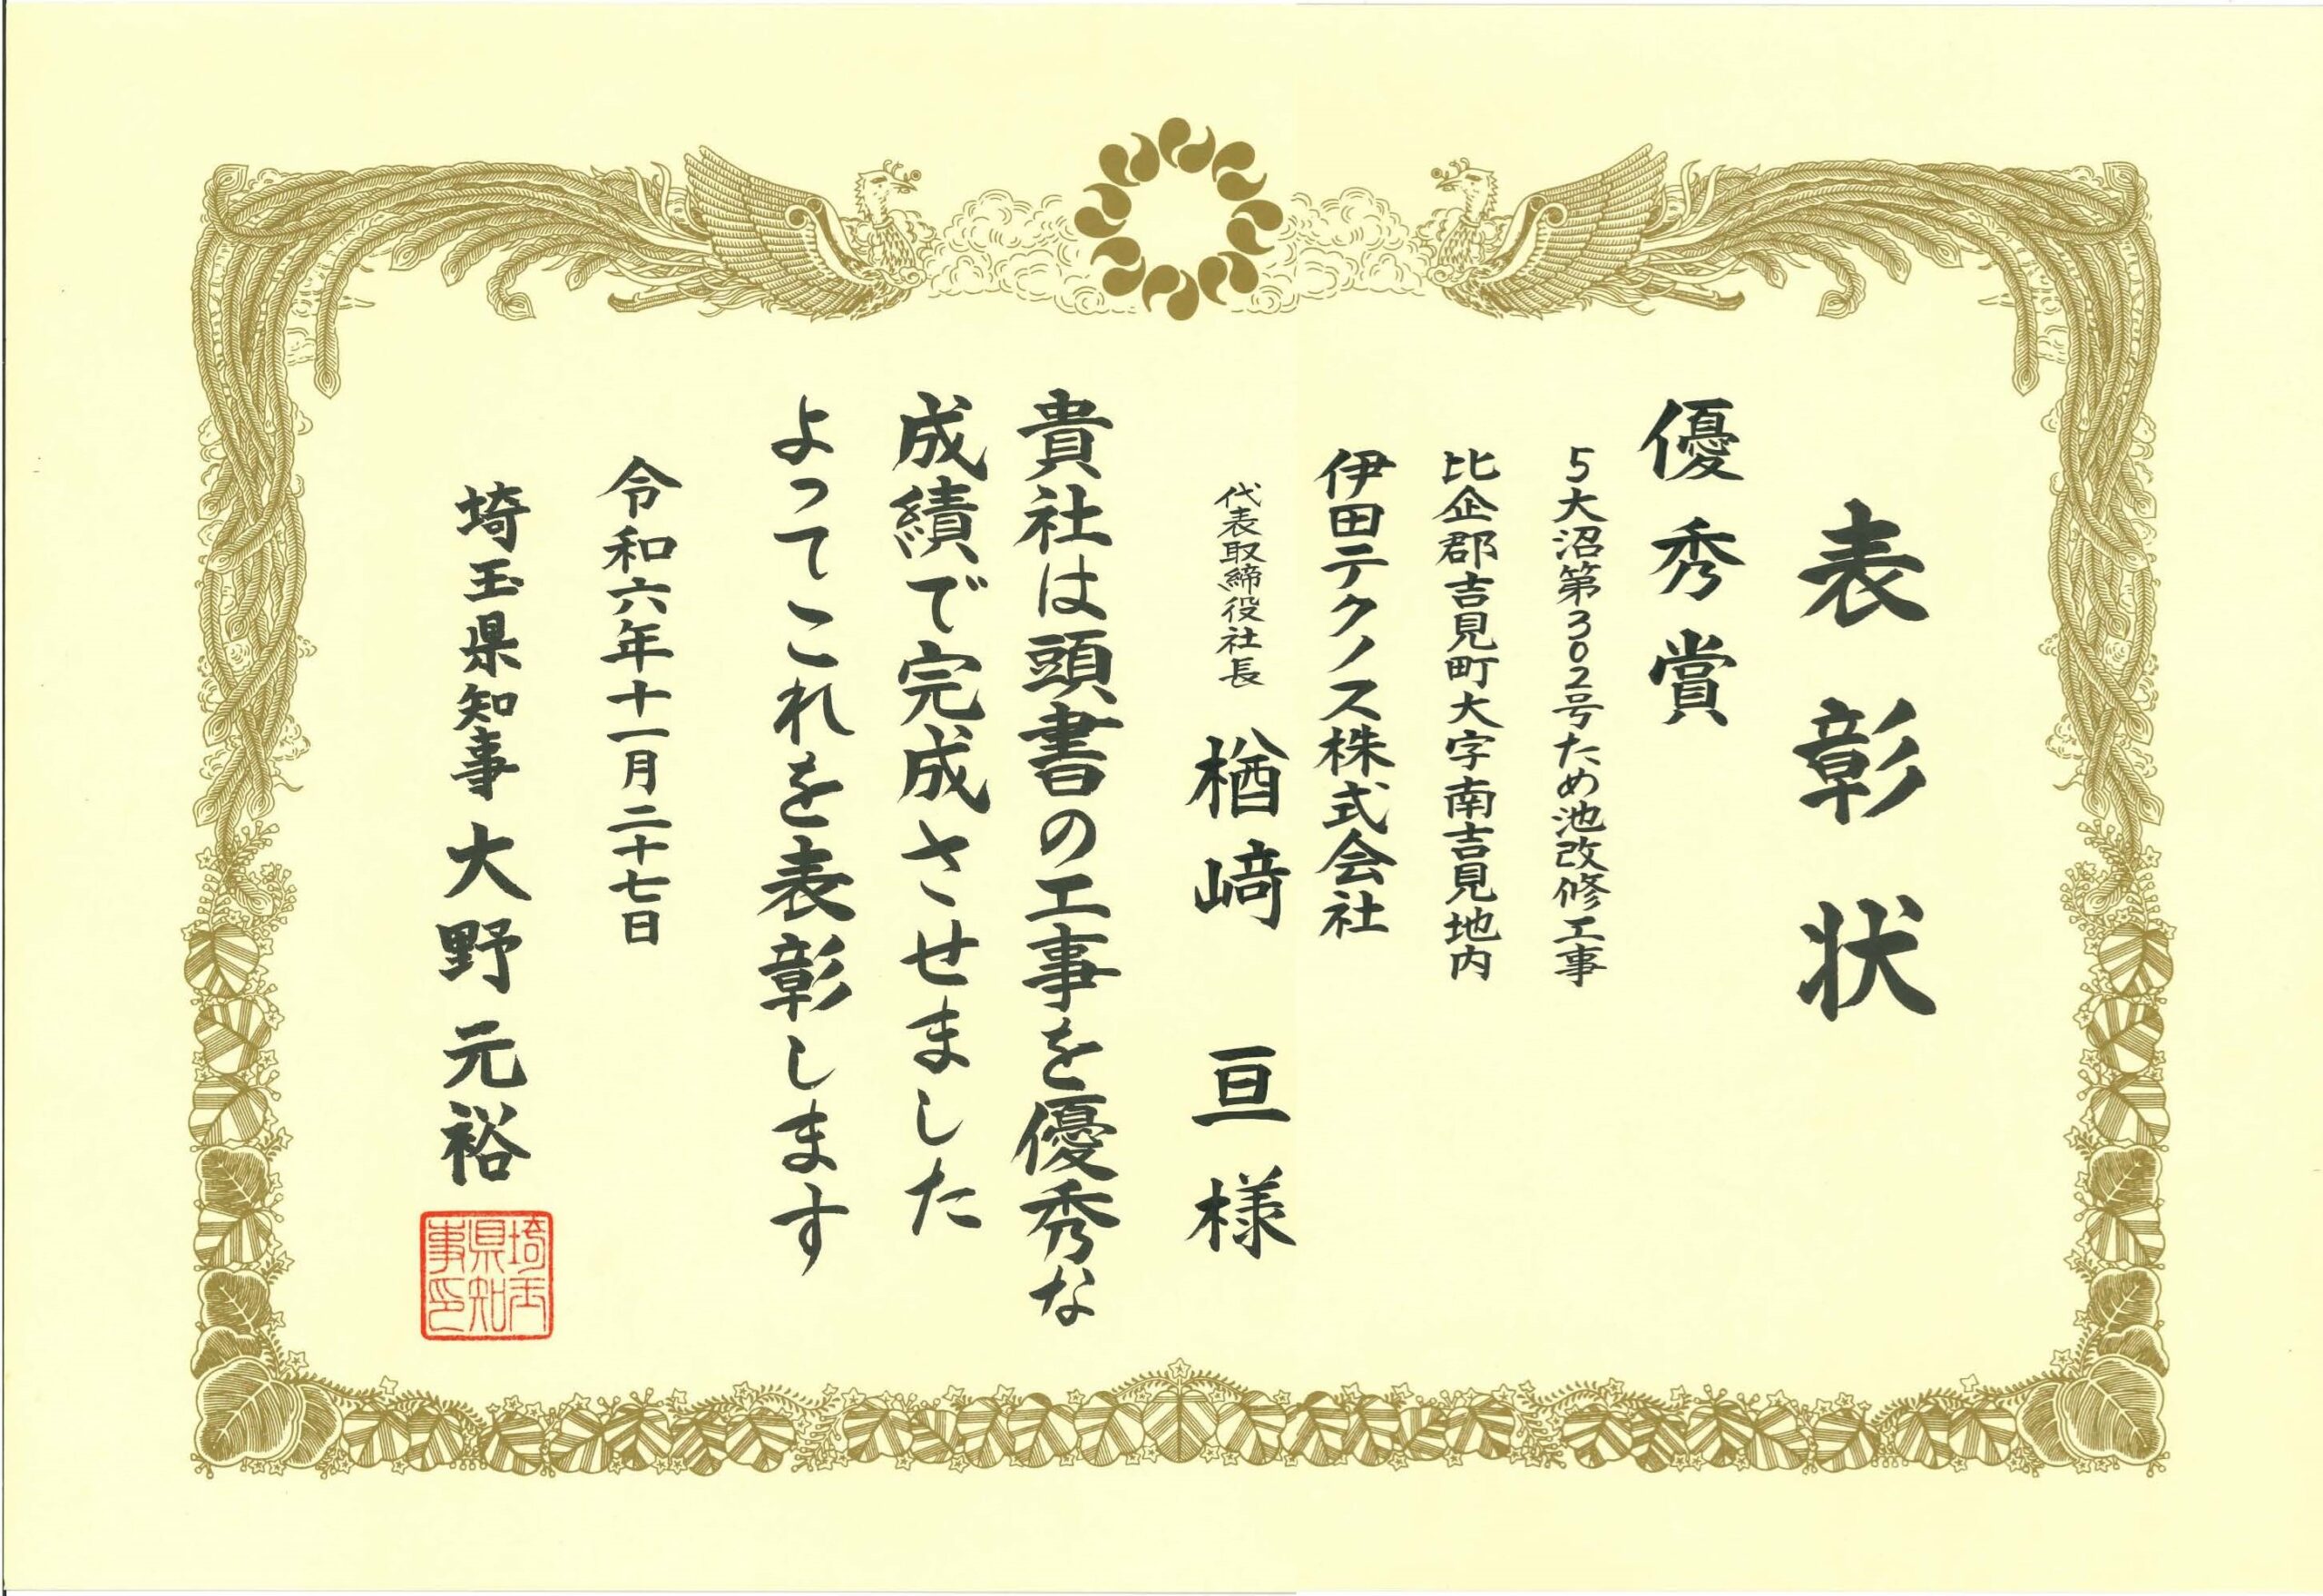 表彰状
優秀賞
5大沼第302号ため池改修工事
比企郡吉見町大字南吉見地内
伊田テクノス株式会社
代表取締役社長 楢﨑 亘 様
貴社は頭書の工事を優秀な
成績で完成させました
よってこれを表彰します
令和六年十一月二十七日
埼玉県知事 大野元裕
埼玉
県知
事印